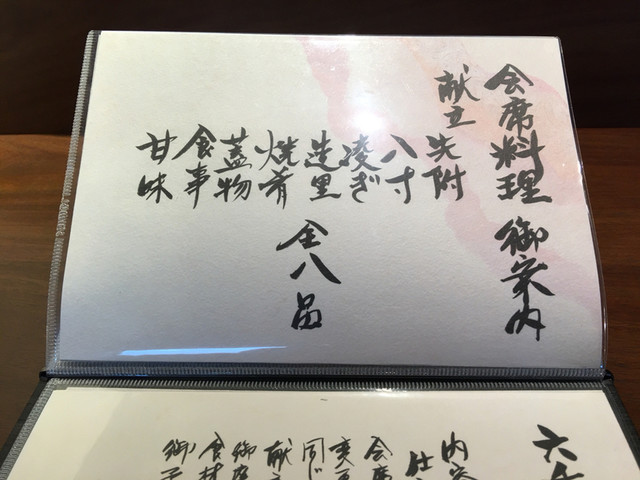 会席料理 御案内
献立
先附
八寸
凌ぎ
造里
焼肴
蓋物
食事
甘味
全八品
六
内容
仕
会席
変更
同じ
献立
御席
食材
御予